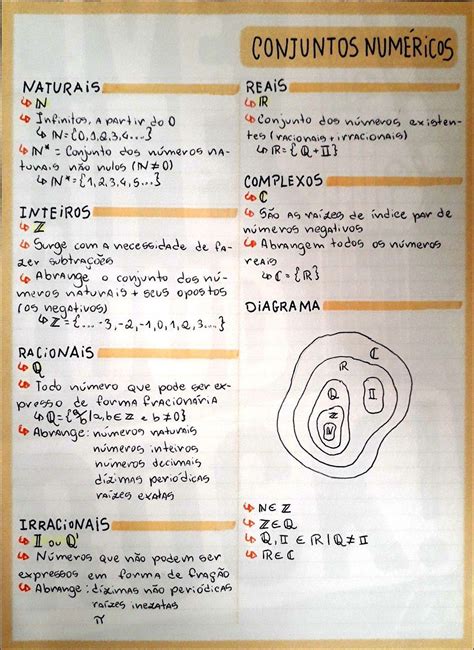 CONJUNTOS NUMÉRICOS
NATURAIS
↳ ℕ
↳ Infinitos, a partir do 0
↳ ℕ = {0,1,2,3,4...}
↳ ℕ* = Conjunto dos números na-
turais não nulos (ℕ ≠ 0)
↳ ℕ* = {1,2,3,4,5...}
INTEIROS
↳ ℤ
↳ Surge com a necessidade de fa-
zer subtrações
↳ Abrange o conjunto dos nú-
meros naturais + seus opostos
(os negativos)
↳ ℤ = {... -3,-2,-1,0,1,2,3...}
RACIONAIS
↳ ℚ
↳ Todo número que pode ser ex-
presso de forma fracionária
↳ ℚ = {a/b | a,b ∈ ℤ e b ≠ 0}
↳ Abrange: números naturais
números inteiros
números decimais
dízimas periódicas
raízes exatas
IRRACIONAIS
↳ 𝕀 ou ℚ'
↳ Números que não podem ser
expressos em forma de fração
↳ Abrange: dízimas não periódicas
raízes inexatas
π
REAIS
↳ ℝ
↳ Conjunto dos números existen-
tes (racionais + irracionais)
↳ ℝ = {ℚ + 𝕀}
COMPLEXOS
↳ ℂ
↳ São as raízes de índice par de
números negativos
↳ Abrangem todos os números
reais
↳ ℂ = {ℝ}
DIAGRAMA
ℂ
ℝ
ℚ 𝕀
ℤ
ℕ
↳ ℕ ∈ ℤ
↳ ℤ ∈ ℚ
↳ ℚ, 𝕀 ∈ ℝ | ℚ ≠ 𝕀
↳ ℝ ∈ ℂ